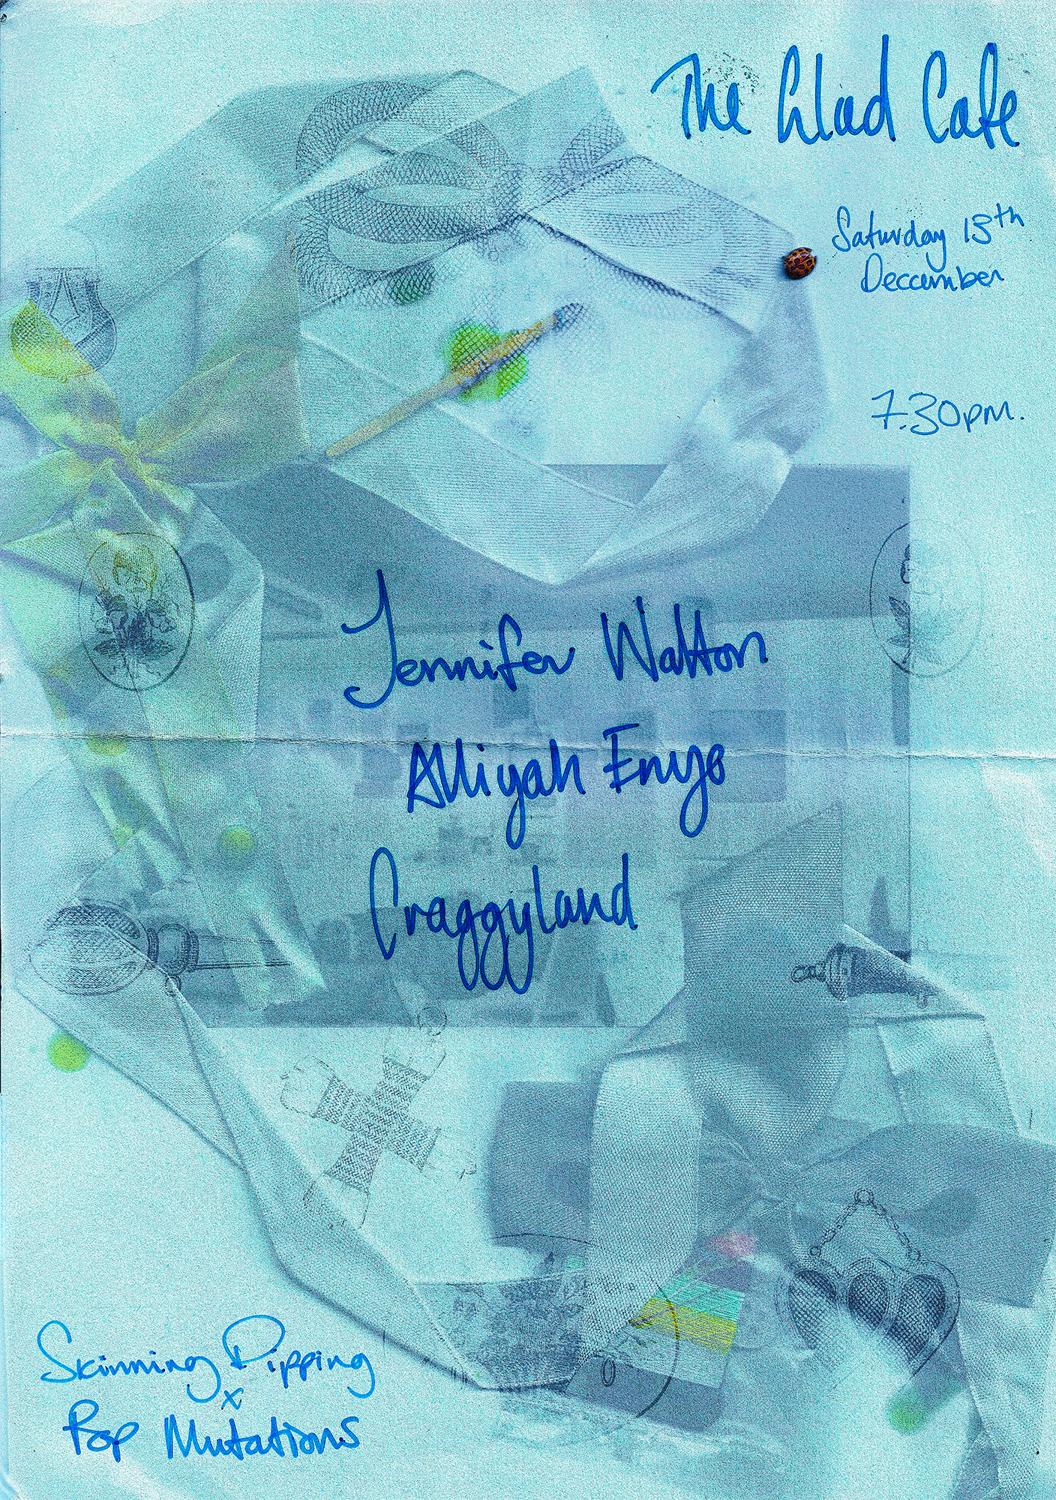 The Glad Cafe
Saturday 13th
Deccember
7.30pm.
Jennifer Walton
Alliyah Enyo
Craggyland
Skinning Dipping
x
Pop Mutations